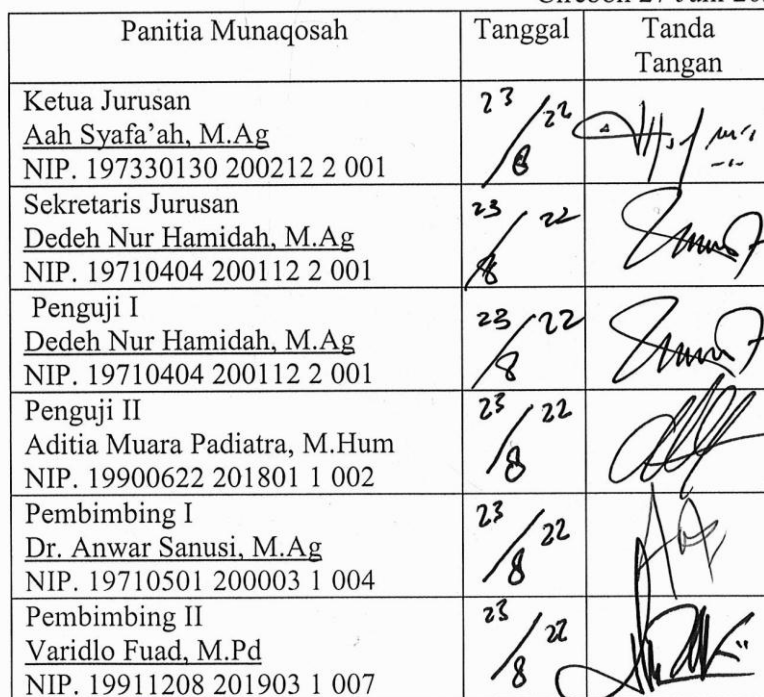 Cirebon 27 Juni 20
Panitia Munaqosah Tanggal Tanda
Tangan
Ketua Jurusan
Aah Syafa'ah, M.Ag
NIP. 197330130 200212 2 001
23/8 22
Sekretaris Jurusan
Dedeh Nur Hamidah, M.Ag
NIP. 19710404 200112 2 001
23/8 22
Penguji I
Dedeh Nur Hamidah, M.Ag
NIP. 19710404 200112 2 001
23/8 22
Penguji II
Aditia Muara Padiatra, M.Hum
NIP. 19900622 201801 1 002
23/8 22
Pembimbing I
Dr. Anwar Sanusi, M.Ag
NIP. 19710501 200003 1 004
23/8 22
Pembimbing II
Varidlo Fuad, M.Pd
NIP. 19911208 201903 1 007
23/8 22